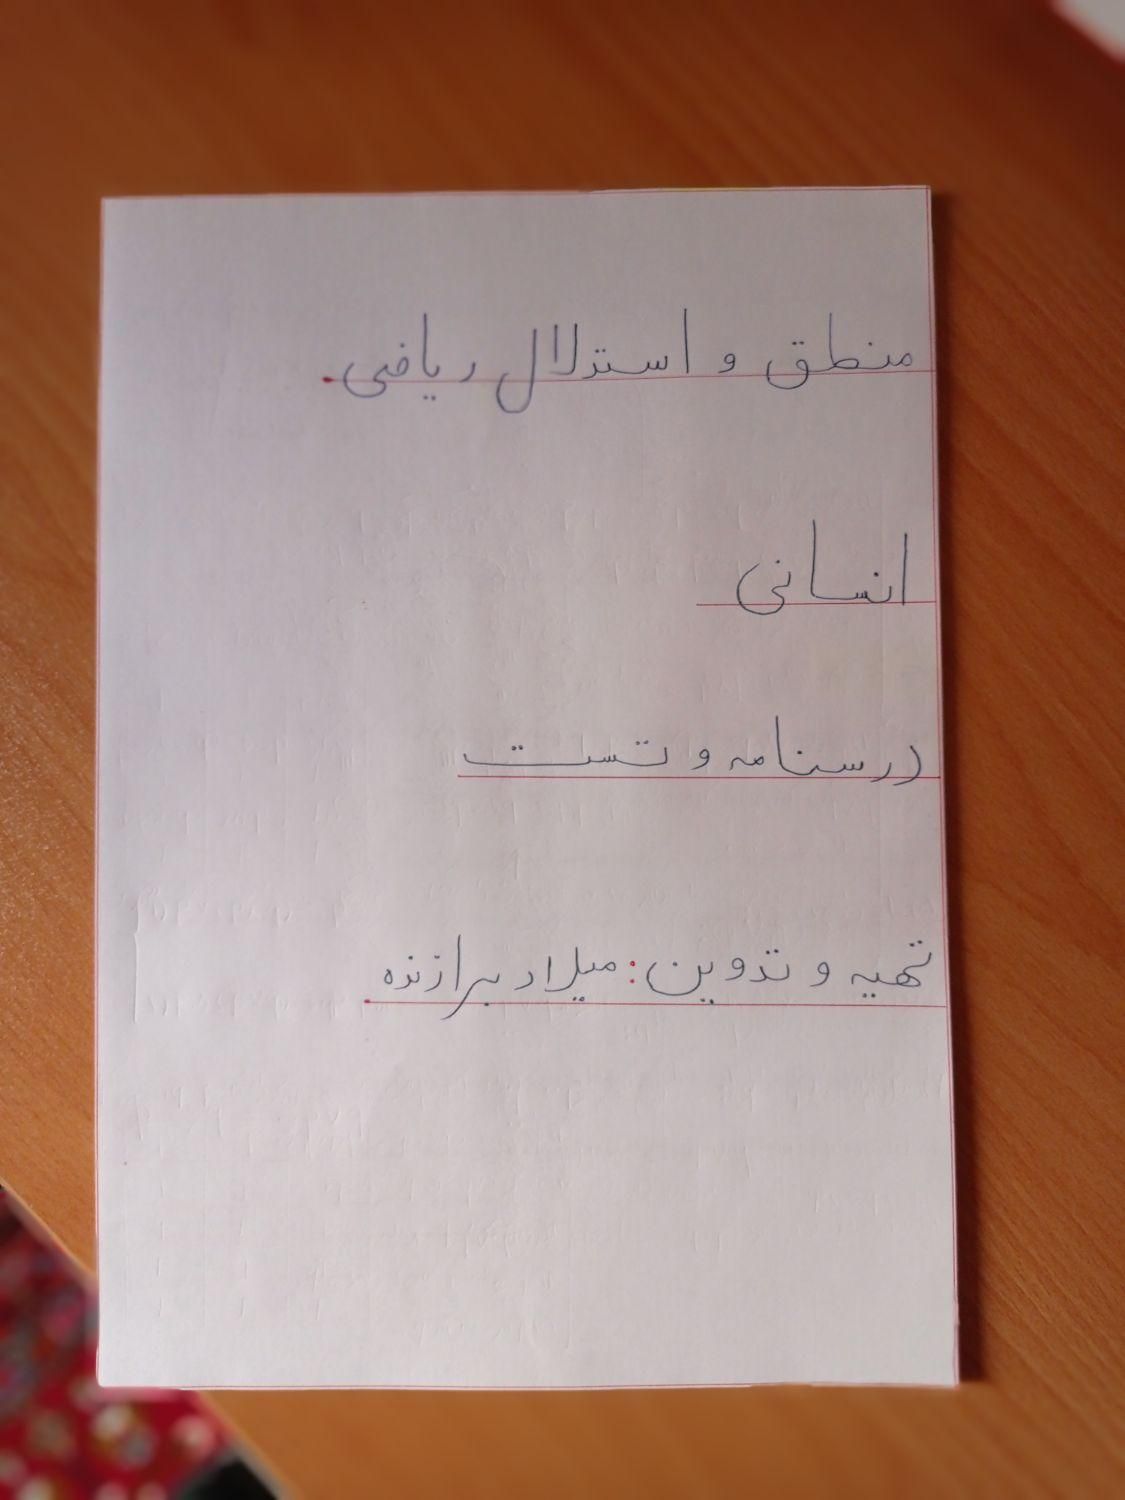 منطق و استدلال ریاضی.
انسانی
درسنامه و تست
تهیه و تدوین: میلاد برازنده